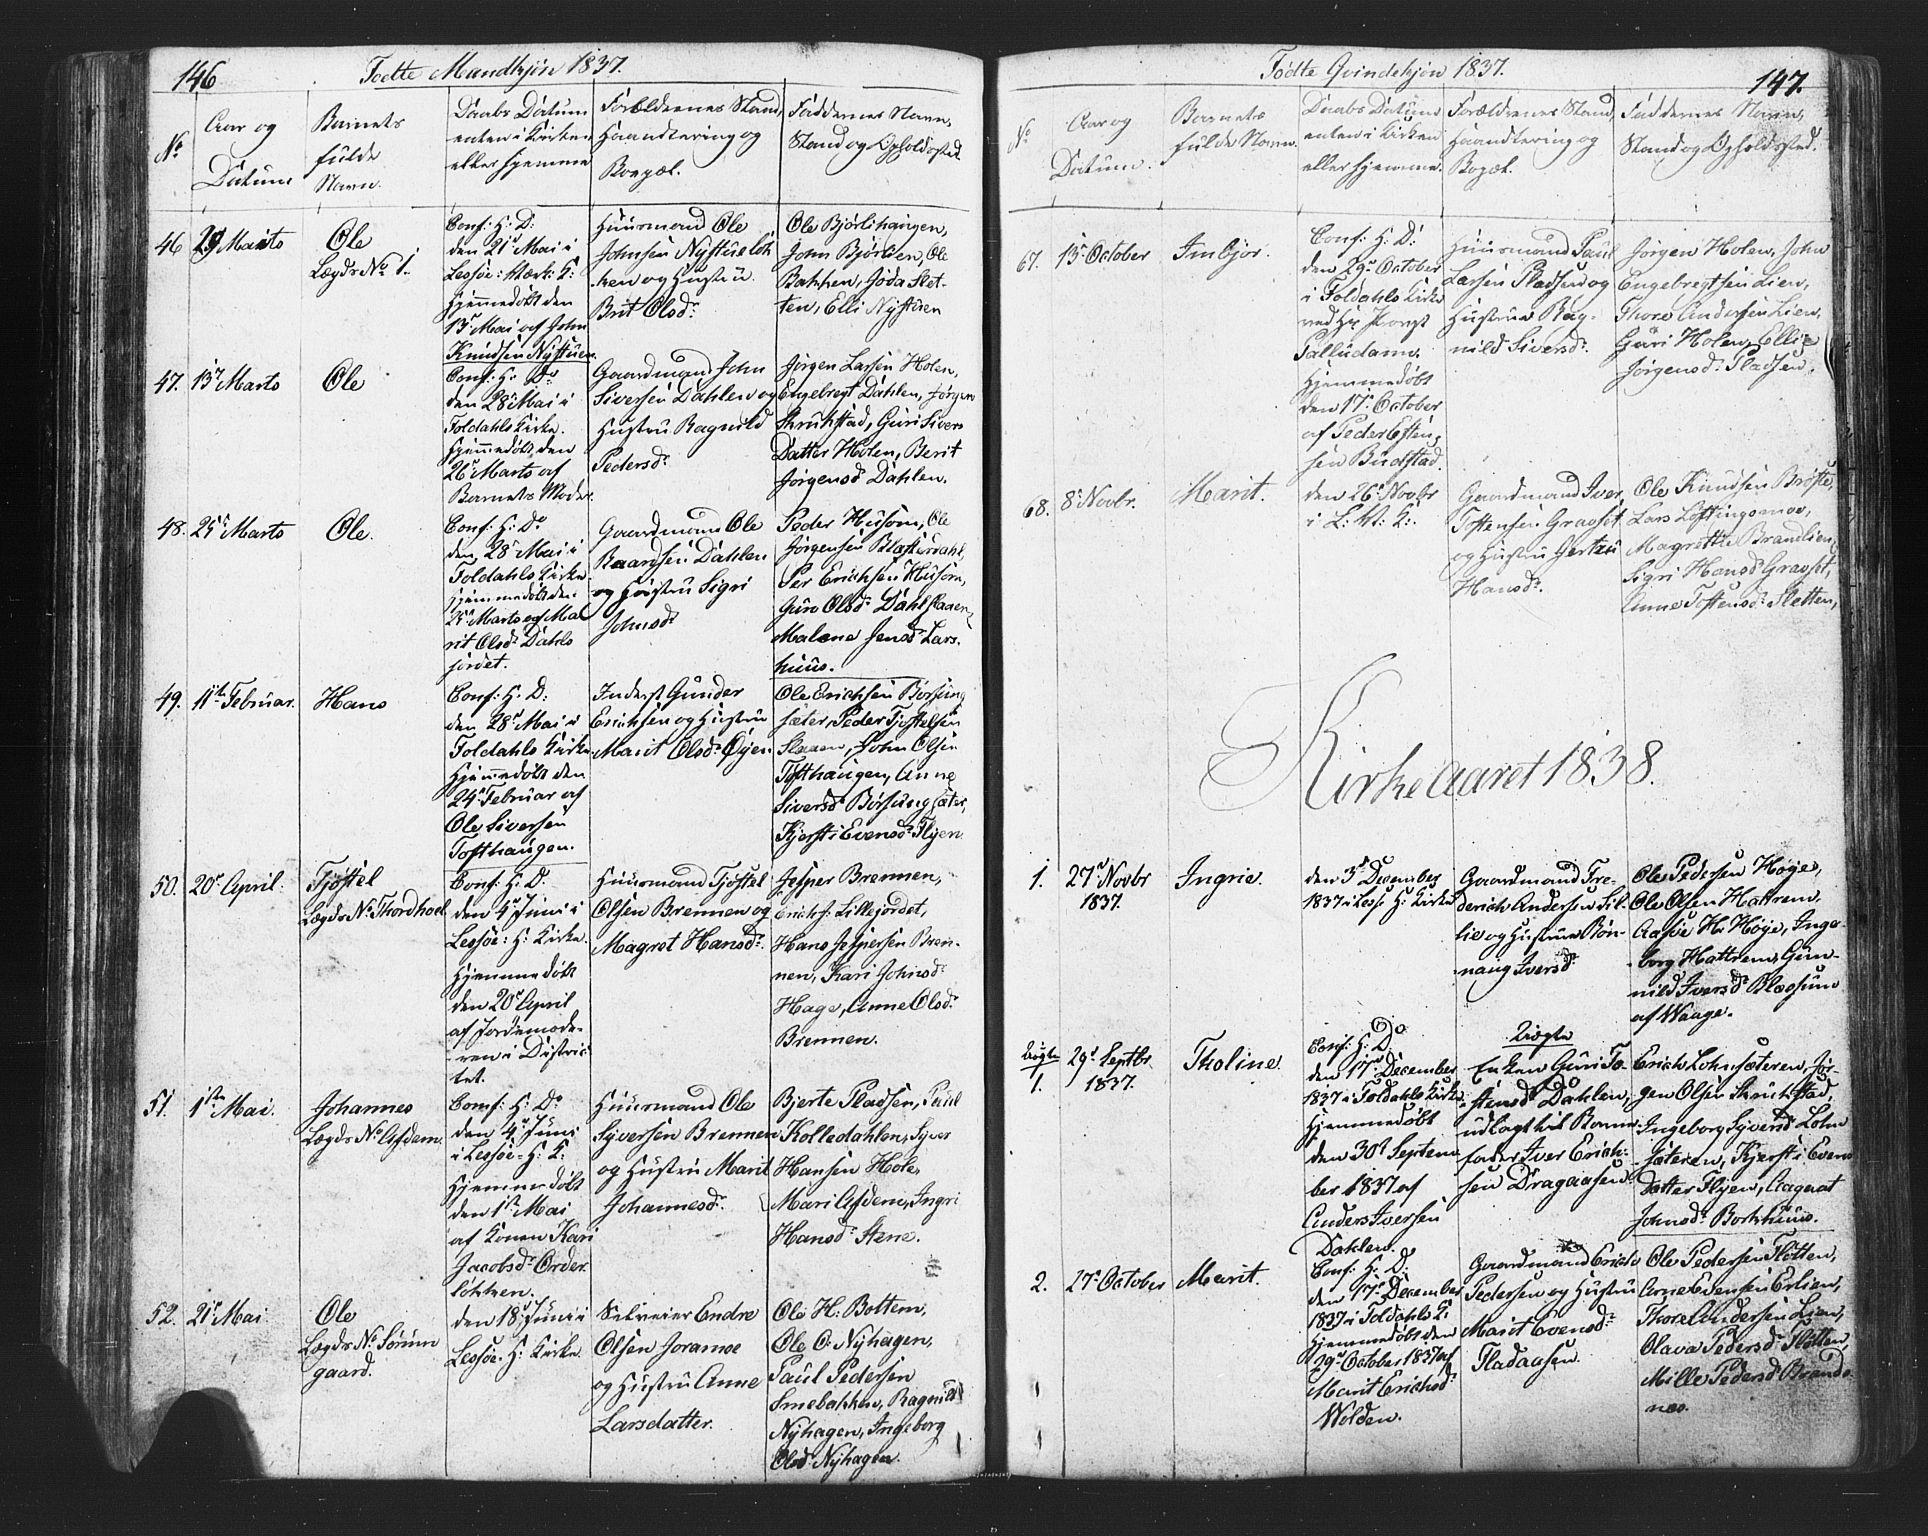 146
Fødte Mandkjøn 1837.
No
Aar og
Datum
Barnets
fulde
Navn.
Daabs Datum
enten i Kirken
eller hjemme
Forældrenes Stand,
Haandtering og
Bopæl.
Faddernes Navn,
Stand og Opholdssted.
46
29 Marts
Ole
Lægds No 1.
Conf: H: D:
den 21de Mai i
Lessøe: Værk: K:
Hjemmedøbt den
13de Mai af John
Knudsen Nystuen
Huusmand Ole
Johnsen Nystueløk-
ken og Hustru
Brit Olsdr
Ole Bjørlihaugen,
John Bjørlien, Ole
Bakken, Joda Slet-
ten, Elli Nystuen
47.
13de Marts
Ole
Conf: H: D:
den 28de Mai i
Foldahls Kirke.
Hjemmedøbt den
26de Marts af
Barnets Moder.
Gaardmand John
Siversen Dahlen og
Hustru Ragnild
Pedersdr
Jørgen Larsen Holen,
Engebregt Dahlen, Jørgen
Skrukstad, Guri Sivers
Datter Holen, Berit
Jørgensd Dahlen.
48.
25de Marts
Ole.
Conf: H: D:
den 28de Mai i
Foldahls Kirke
Hjemmedøbt den
25de Marts af Ma-
rit Olsdr Dahls
jordet.
Gaardmand Ole
Baardsen Dahlen
og Hustru Sigri
Johnsdr
Peder Husom, Ole
Jørgensen
Per Erichsen Husom,
Guri Olsdr
Malene Jensdr Lars-
huus.
49.
11te Februar.
Hans
Conf: H: D:
den 28de Mai i
Foldahls Kirke.
Hjemmedøbt den
24de Februar af
Ole Siversen
Tofthaugen.
Inderst Gunder
Erichsen og Hustru
Marit Olsdr Øyen
Ole Erichsen Børsung
sæter, Peder Tjøstelsen
Slaaen, John Olsen
Tofthaugen, Anne
Siversdr Børsungsæter,
Kjersti Evensdr Flyen
50.
20de April.
Tjøstel
Lægds No: Thordhoel
Conf: H: D:
den 4de Juni i
Lessøe: H: Kirke.
Hjemmedøbt
den 20de April
af Jordemode-
ren i Distric-
tet.
Huusmand Tjøstel
Olsen Brennen og
Magret Hansdr
Jesper Brennen,
Erich J: Lillejordet,
Hans Jespersen Bren-
nen, Kari Johnsdr
Hage, Anne Olsdr
Brennen.
51.
1ste Mai.
Johannes
Lægds No Asdem.
Conf: H: D:
den 4de Juni
i Lessøe: H: K:
Hjemmedøbt
den 1ste Mai
af Konen Kari
Jacobsdr Order
løkken.
Huusmand Ole
Syversen Brennen
og Hustru Marit
Johannesdr
Bjerte Pladsen, Paul
Kolledahlen, Syver
Hansen Hole,
Mari Asdem, Ingri
Hansdr Stene.
52.
21de Mai
Ole
Lægds No. Sørum
gaard.
den 18de Juni i
Lessøe: H: Kirke
Selveier Endre
Olsen Joramoe
og Hustru Anne
Larsdatter.
Ole H: Bottem,
Ole O: Nyhagen,
Paul Pedersen
Smebakken, Ragnild
Nyhagen, Ingeborg
Olsdr Nyhagen.
147.
Fødte Qvindekjøn 1837.
No
Aar og
Datum.
Barnets
fulde Navn.
Daabs Datum
enten i Kirken
eller hjemme.
Forældrenes Stand,
Haandtering og
Bopæl.
Faddernes Navn,
Stand og Opholdssted.
67.
13de October
Imbjor.
Conf: H: D:
den 29de October
i Foldahls Kirke
ved Hr Provst
Palludann.
Hjemmedøbt
den 17de October
af Peder Esten-
sen Budstad.
Huusmand Paul
Larsen Pladsen og
Hustrue Rag-
nild Siversdr
Jørgen Holen, John
Engebregtsen Lien,
Thore Andersen Lien,
Guri Holen, Elli
Jørgensdr Pladsen.
68.
8de Novbr.
Marit.
den 26de Novbr
i L: V: K:
Gaardmand Iver
Tostensen Gravset
og Hustru Gertru
Hansdr
Ole Knudsen Brøste,
Lars Løftingsmoe,
Magrette Brandlien,
Sigri Hansdr Gravset,
Anne Tostensdr Sletten,
Kirkeaaret 1838.
1.
27de Novbr
1837.
Ingrie.
den 3de December
1837 i Lesje H: Kirke
Gaardmand Fre-
derich Andersen Lil-
lie og Hustrue Røn-
naug Iversdr
Ole Pedersen Høye,
Ole Olsen Hattrem,
Aasve H: Høye, Inge-
borg Hattrem, Gun-
nild Iversdr Blæsum
af Waage.
Uægte
1.
29de Septbr
1837.
Tholine.
Conf: H: D:
den 17de December
1837 i Foldahls Kirke
Hjemmedøbt
den 30te Septem
ber 1837 af
Anders Iversen
Dahlen.
Uægte
Enken Guri To-
stensdr Dahlen,
udlagt til Barne
fader Iver Erich-
sen Dragaasen
Erich Lohnsæteren, Jør-
gen Olsen Skrukstad,
Ingeborg Syversdr Lohn
sæteren, Kjersti Evens
datter Flyen, Aagnat
Johnsdr Borkhuus.
2.
27de October
Marit.
Conf: H: D:
den 17de December
1837 i Foldahls K:
Hjemmedøbt den
29de October 1837 af
Marit Erichsdr
Wolden.
Gaardmand Erich
Pedersen og Hustru
Marit Evensdr
Fladaasen
Ole Pedersen Fløtten,
Arne Evensen Erlien,
Thore Andersen Lien,
Olava Pedersdr Fløtten,
Mille Pedersdr Brands
næs.